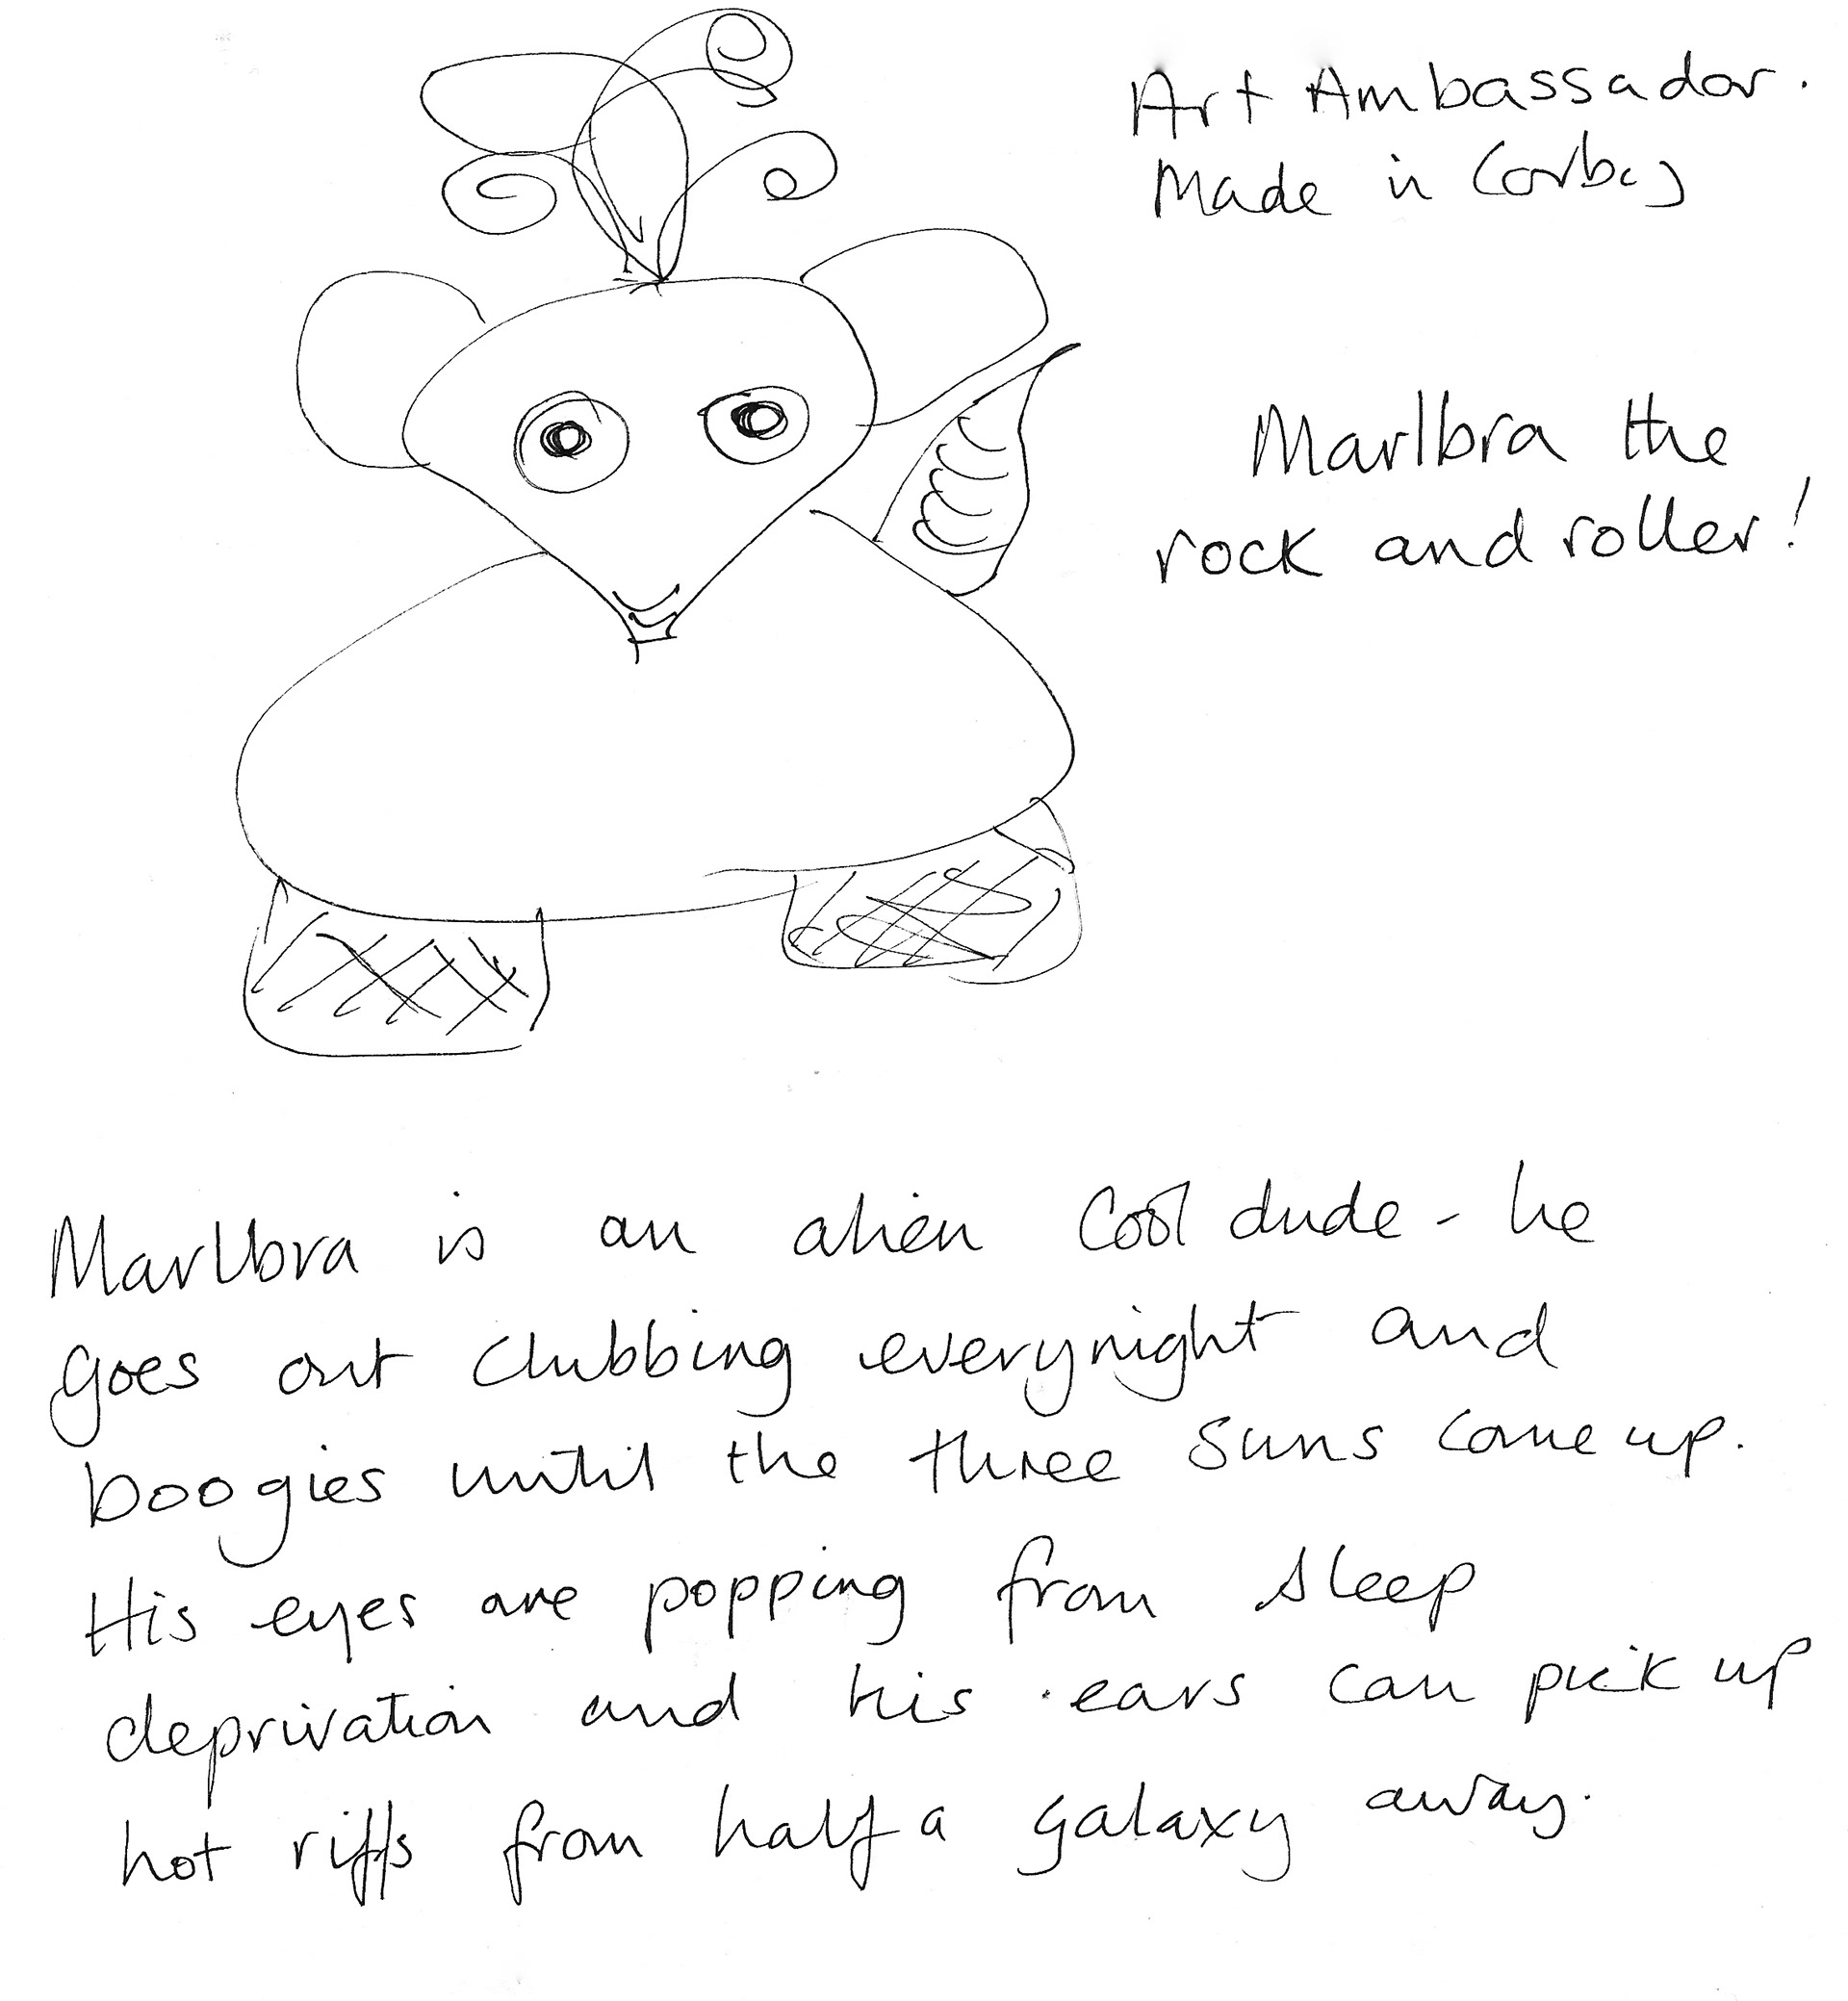 Art Ambassador.
Made in Corby
Marlbra the
rock and roller!
Marlbra is an alien cool dude - he
goes out clubbing everynight and
boogies until the three suns come up.
His eyes are popping from sleep
deprivation and his ears can pick up
hot riffs from half a galaxy away.